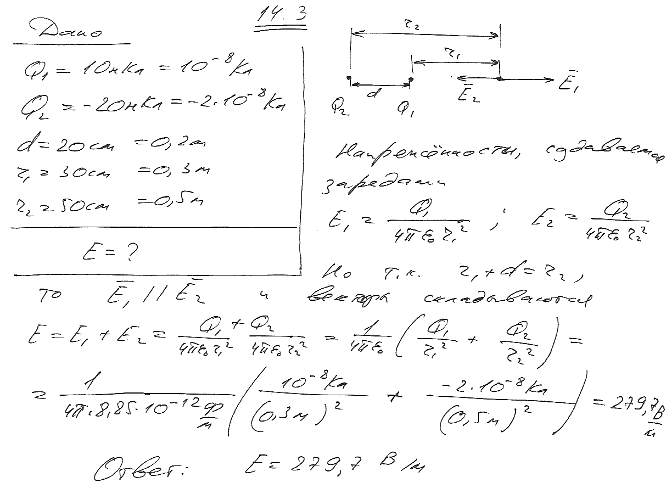 14.3
Дано
Q₁ = 10нКл = 10⁻⁸Кл
Q₂ = -20нКл = -2·10⁻⁸Кл
d = 20см = 0,2м
r₁ = 30см = 0,3м
r₂ = 50см = 0,5м
E = ?
r₂
r₁
d
Q₂ Q₁ E̅₂ E̅₁
Напряжённости, создаваемые
зарядами
E₁ = Q₁/(4πε₀r₁²) ; E₂ = Q₂/(4πε₀r₂²)
Но т.к. r₁+d = r₂,
то E̅₁ // E̅₂ и вектора складываются
E = E₁ + E₂ = Q₁/(4πε₀r₁²) + Q₂/(4πε₀r₂²) = 1/(4πε₀) (Q₁/r₁² + Q₂/r₂²) =
= 1/(4π·8,85·10⁻¹² Ф/м) (10⁻⁸Кл/(0,3м)² + -2·10⁻⁸Кл/(0,5м)²) = 279,7 В/м
Ответ: E = 279,7 В/м